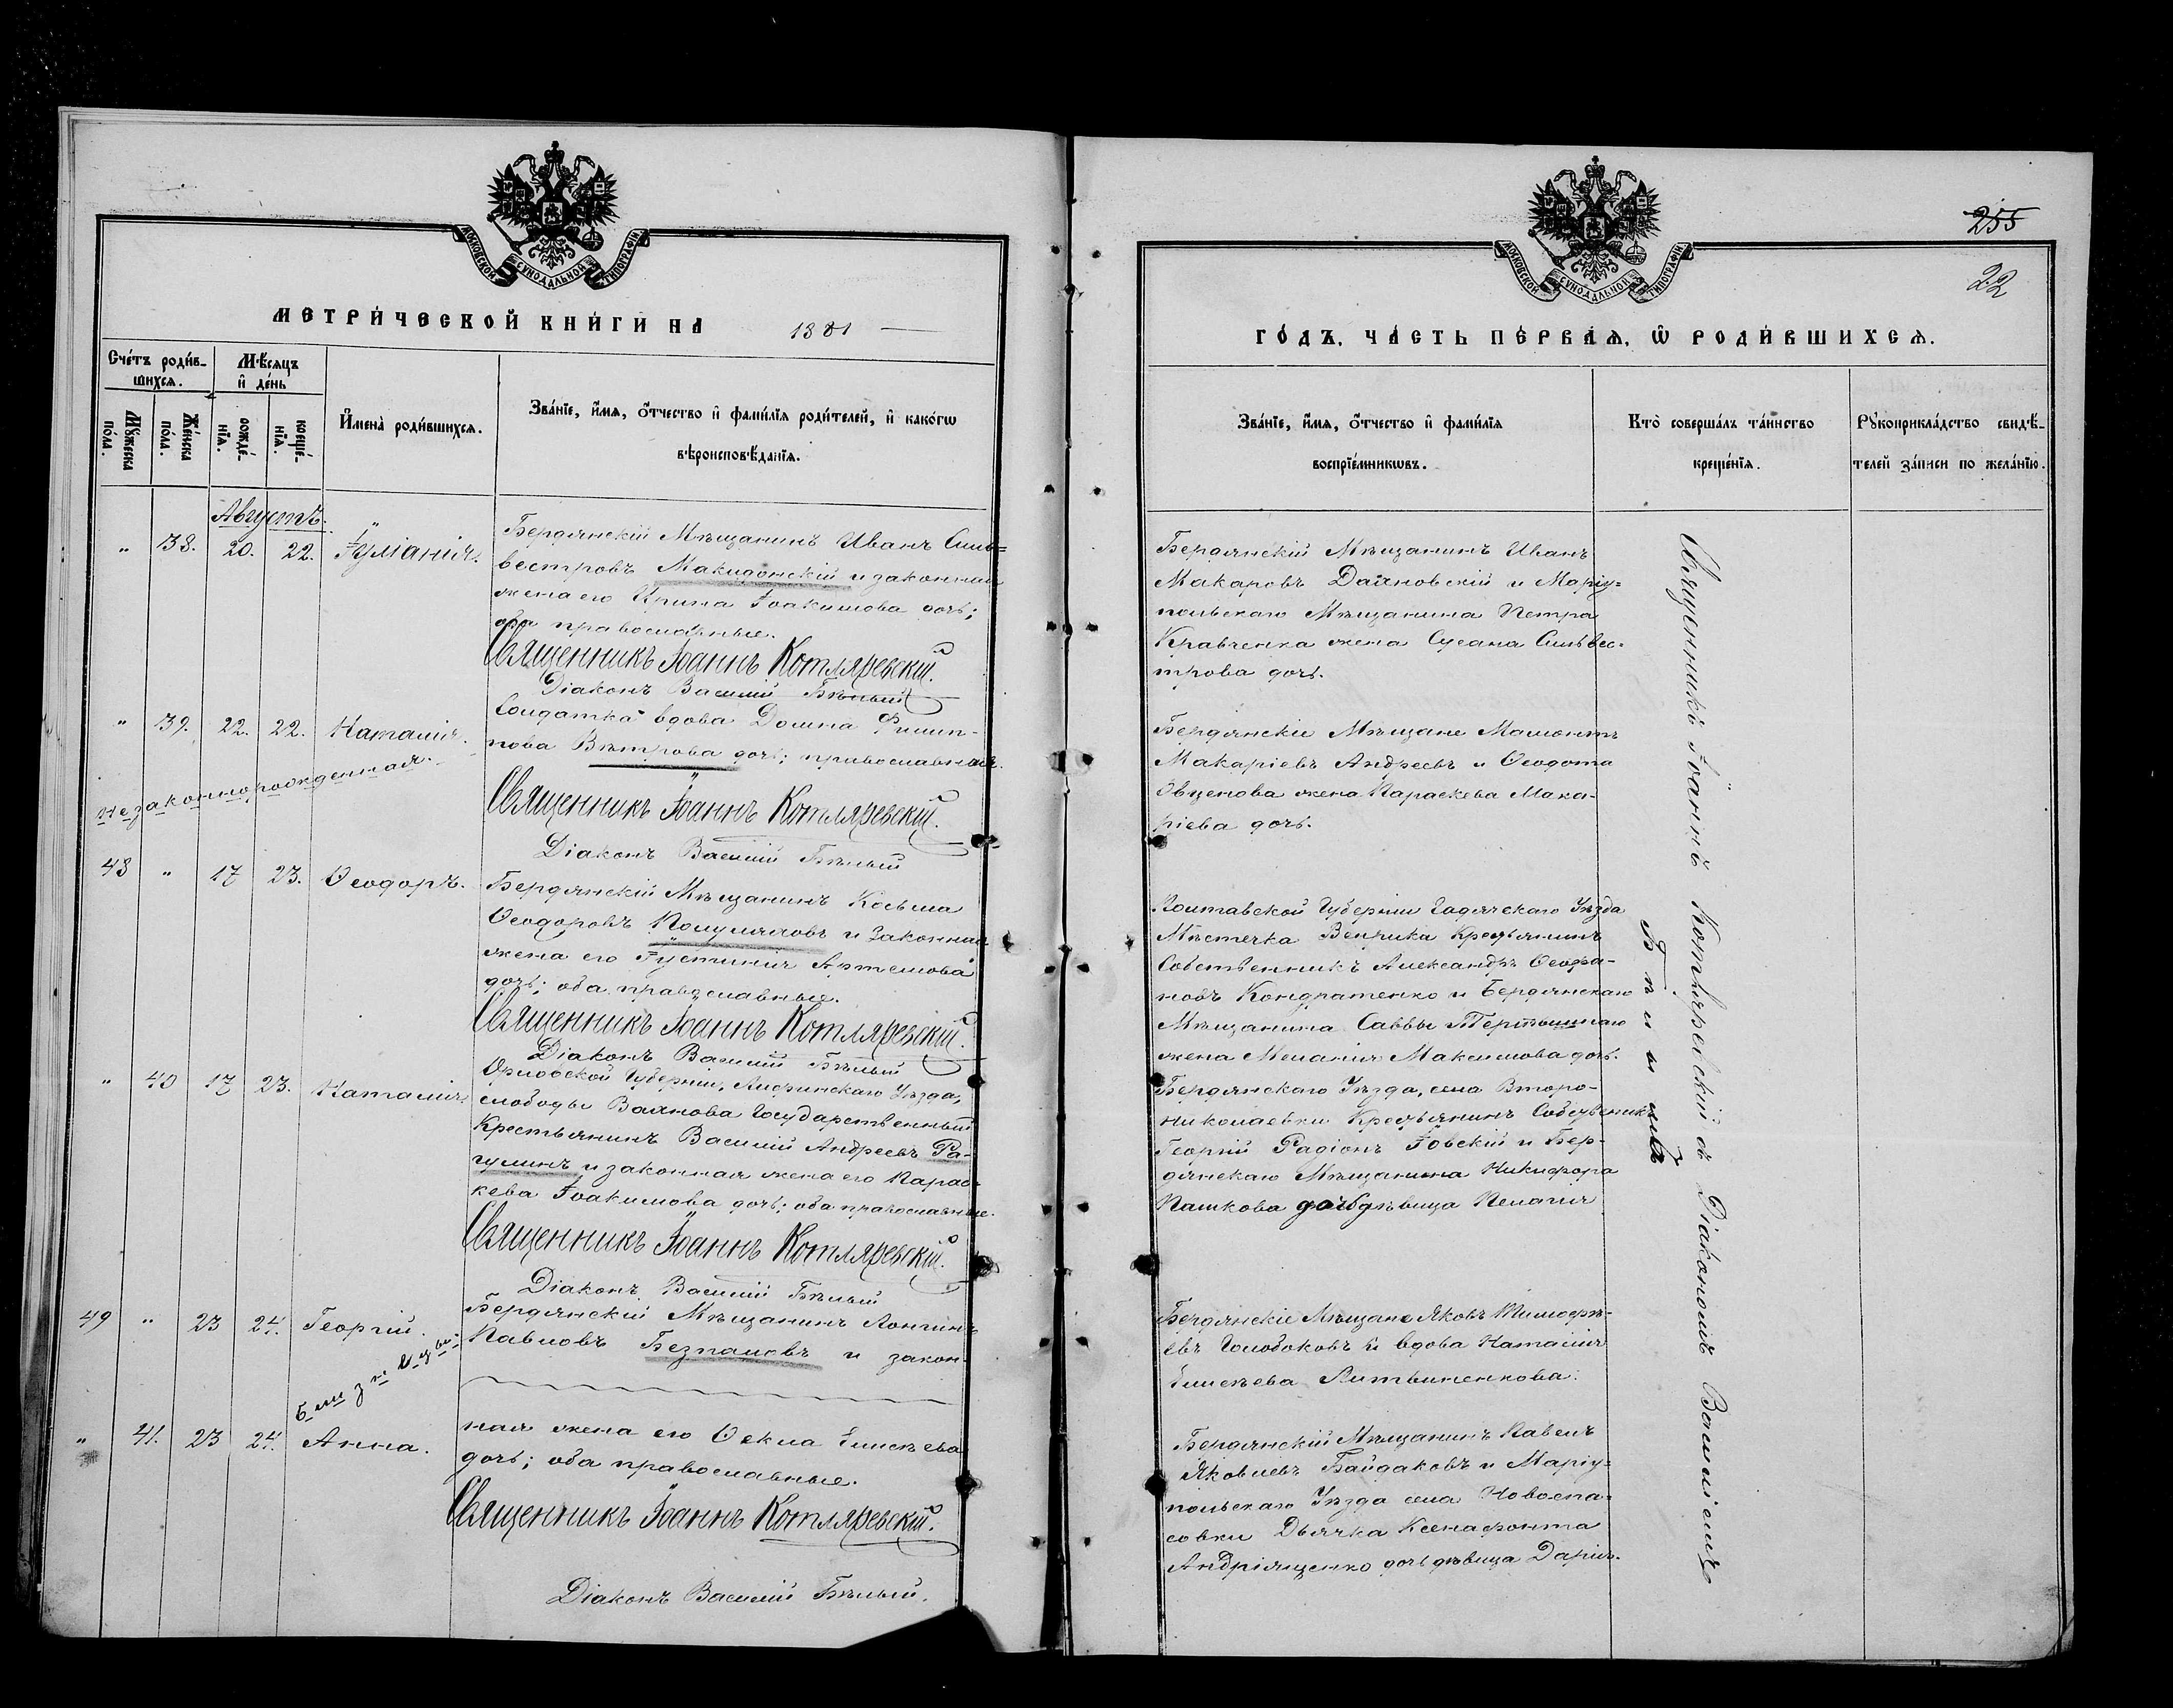 МОСКОВСКОЙ СѴНОДАЛЬНОЙ ТИПОГРАФІИ
МЕТРИ́ЧЕСКОЙ КНИ́ГИ НА 1881
Сче́тъ роди́в-
шихся.
Мѣ́сяцъ
и҆ де́нь
Мꙋ́жеска
по́ла.
Же́нска
по́ла.
рожде́-
нїѧ.
креще́-
нїѧ.
И҆мена̀ роди́вшихсѧ.
Зва́нїе, и҆́мѧ, ѻ҆́тчество и҆ фамі́лїѧ роди́телей, и҆ како́гѡ
вѣроисповѣ́данїѧ.
Августъ.
„ 38. 20. 22. Іуліанія.
Бердянскій Мѣщанинъ Иванъ Силь=
вестровъ Македонскій и законная
жена его Ирина Іоакимова дочь;
оба православные.
Священникъ Іоаннъ Котляревскій.
Діаконъ Василій Бѣлый
„ 39. 22. 22. Наталія.
незаконнорожденная.
Солдатка вдова Домна Филип-
пова Вѣтрова дочь; православная.
Священникъ Іоаннъ Котляревскій.
Діаконъ Василій Бѣлый
48 „ 17 23. Ѳеодоръ.
Бердянскій Мѣщанинъ Косьма
Ѳеодоровъ и Законная
жена его Іустинія Артемова
дочь; оба православные.
Священникъ Іоаннъ Котляревскій.
Діаконъ Василій Бѣлый
„ 40 17 23. Наталія.
Орловской Губерніи, Уѣзда,
слободы Государственный
Крестьянинъ Василій Андреевъ Ра-
гулинъ и законная жена его Парас-
кева Іоакимова дочь; оба православные.
Священникъ Іоаннъ Котляревскій.
Діаконъ Василій Бѣлый
49 „ 23 24. Георгій.
близнецы:
Бердянскій Мѣщанинъ Лонгинъ
Павловъ Безпаловъ и закон-
„ 41. 23 24. Анна.
ная жена его Ѳекла Елисѣева
дочь; оба православные.
Священникъ Іоаннъ Котляревскій.
Діаконъ Василій Бѣлый.
МОСКОВСКОЙ СѴНОДАЛЬНОЙ ТИПОГРАФІИ
255
22
ГО́ДЪ, ЧА́СТЬ ПЕ́РВАѦ, Ѡ҆ РОДИ́ВШИХСѦ.
Зва́нїе, и҆́мѧ, ѻ҆́тчество и҆ фамі́лїѧ
воспрїе́мникѡвъ.
Кто̀ соверша́лъ та́инство
креще́нїѧ.
Рꙋкоприкла́дство свидѣ́-
телей за́писи по жела́нїю.
Бердянскій Мѣщанинъ Иванъ
Макаровъ и Маріу=
польскаго Мѣщанина Петра
Кравченка жена Сусана Сильвес-
трова дочь.
Бердянскіе Мѣщане Мамонтъ
Макаріевъ Андреевъ и Ѳеодота
Овценова жена Параскева Мака-
ріева дочь.
Полтавской Губерніи Гадячскаго Уѣзда
Мѣстечка Веприка Крестьянинъ
Собственникъ Александръ Ѳеофа-
новъ Кондратенко и Бердянскаго
Мѣщанина Саввы
жена Меланія Максимова дочь.
Бердянскаго Уѣзда, села Второ-
николаевки Крестьянинъ Собственикъ
Георгій Радіонъ и Бер-
дянскаго Мѣщанина Никифора
Пашкова дочь дѣвица Пелагія
Бердянскіе Мѣщане Яковъ Тимофѣ-
евъ Голобоковъ и вдова Наталія
Елисѣева Литвиненкова.
Бердянскій Мѣщанинъ Павелъ
Яковлевъ Байдаковъ и Маріу=
польскаго Уѣзда села Новоспа=
совки Дьячка Ксенафонта
Андріященко дочь дѣвица Дарія.
Священникъ Іоаннъ Котляревскій съ Діакономъ Василіемъ
Бѣлымъ